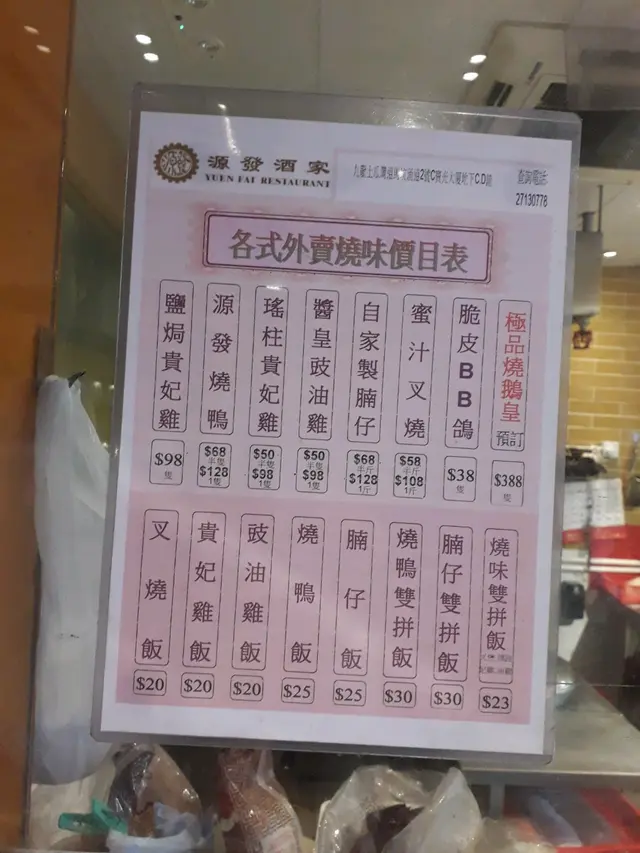 源發酒家
YUEN FAT RESTAURANT
九龍土瓜灣 2號C 光大廈地下C.D舖
查詢電話:
27130778
各式外賣燒味價目表
極品燒鵝皇
預訂
$388
隻
脆皮BB鴿
$38
隻
蜜汁叉燒
$58
半斤
$108
1斤
自家製腩仔
$68
半斤
$128
1斤
醬皇豉油雞
$50
半隻
$98
1隻
瑤柱貴妃雞
$50
半隻
$98
1隻
源發燒鴨
$68
半隻
$128
1隻
鹽焗貴妃雞
$98
隻
燒味雙拼飯
$23
腩仔雙拼飯
$30
燒鴨雙拼飯
$30
腩仔飯
$25
燒鴨飯
$25
豉油雞飯
$20
貴妃雞飯
$20
叉燒飯
$20